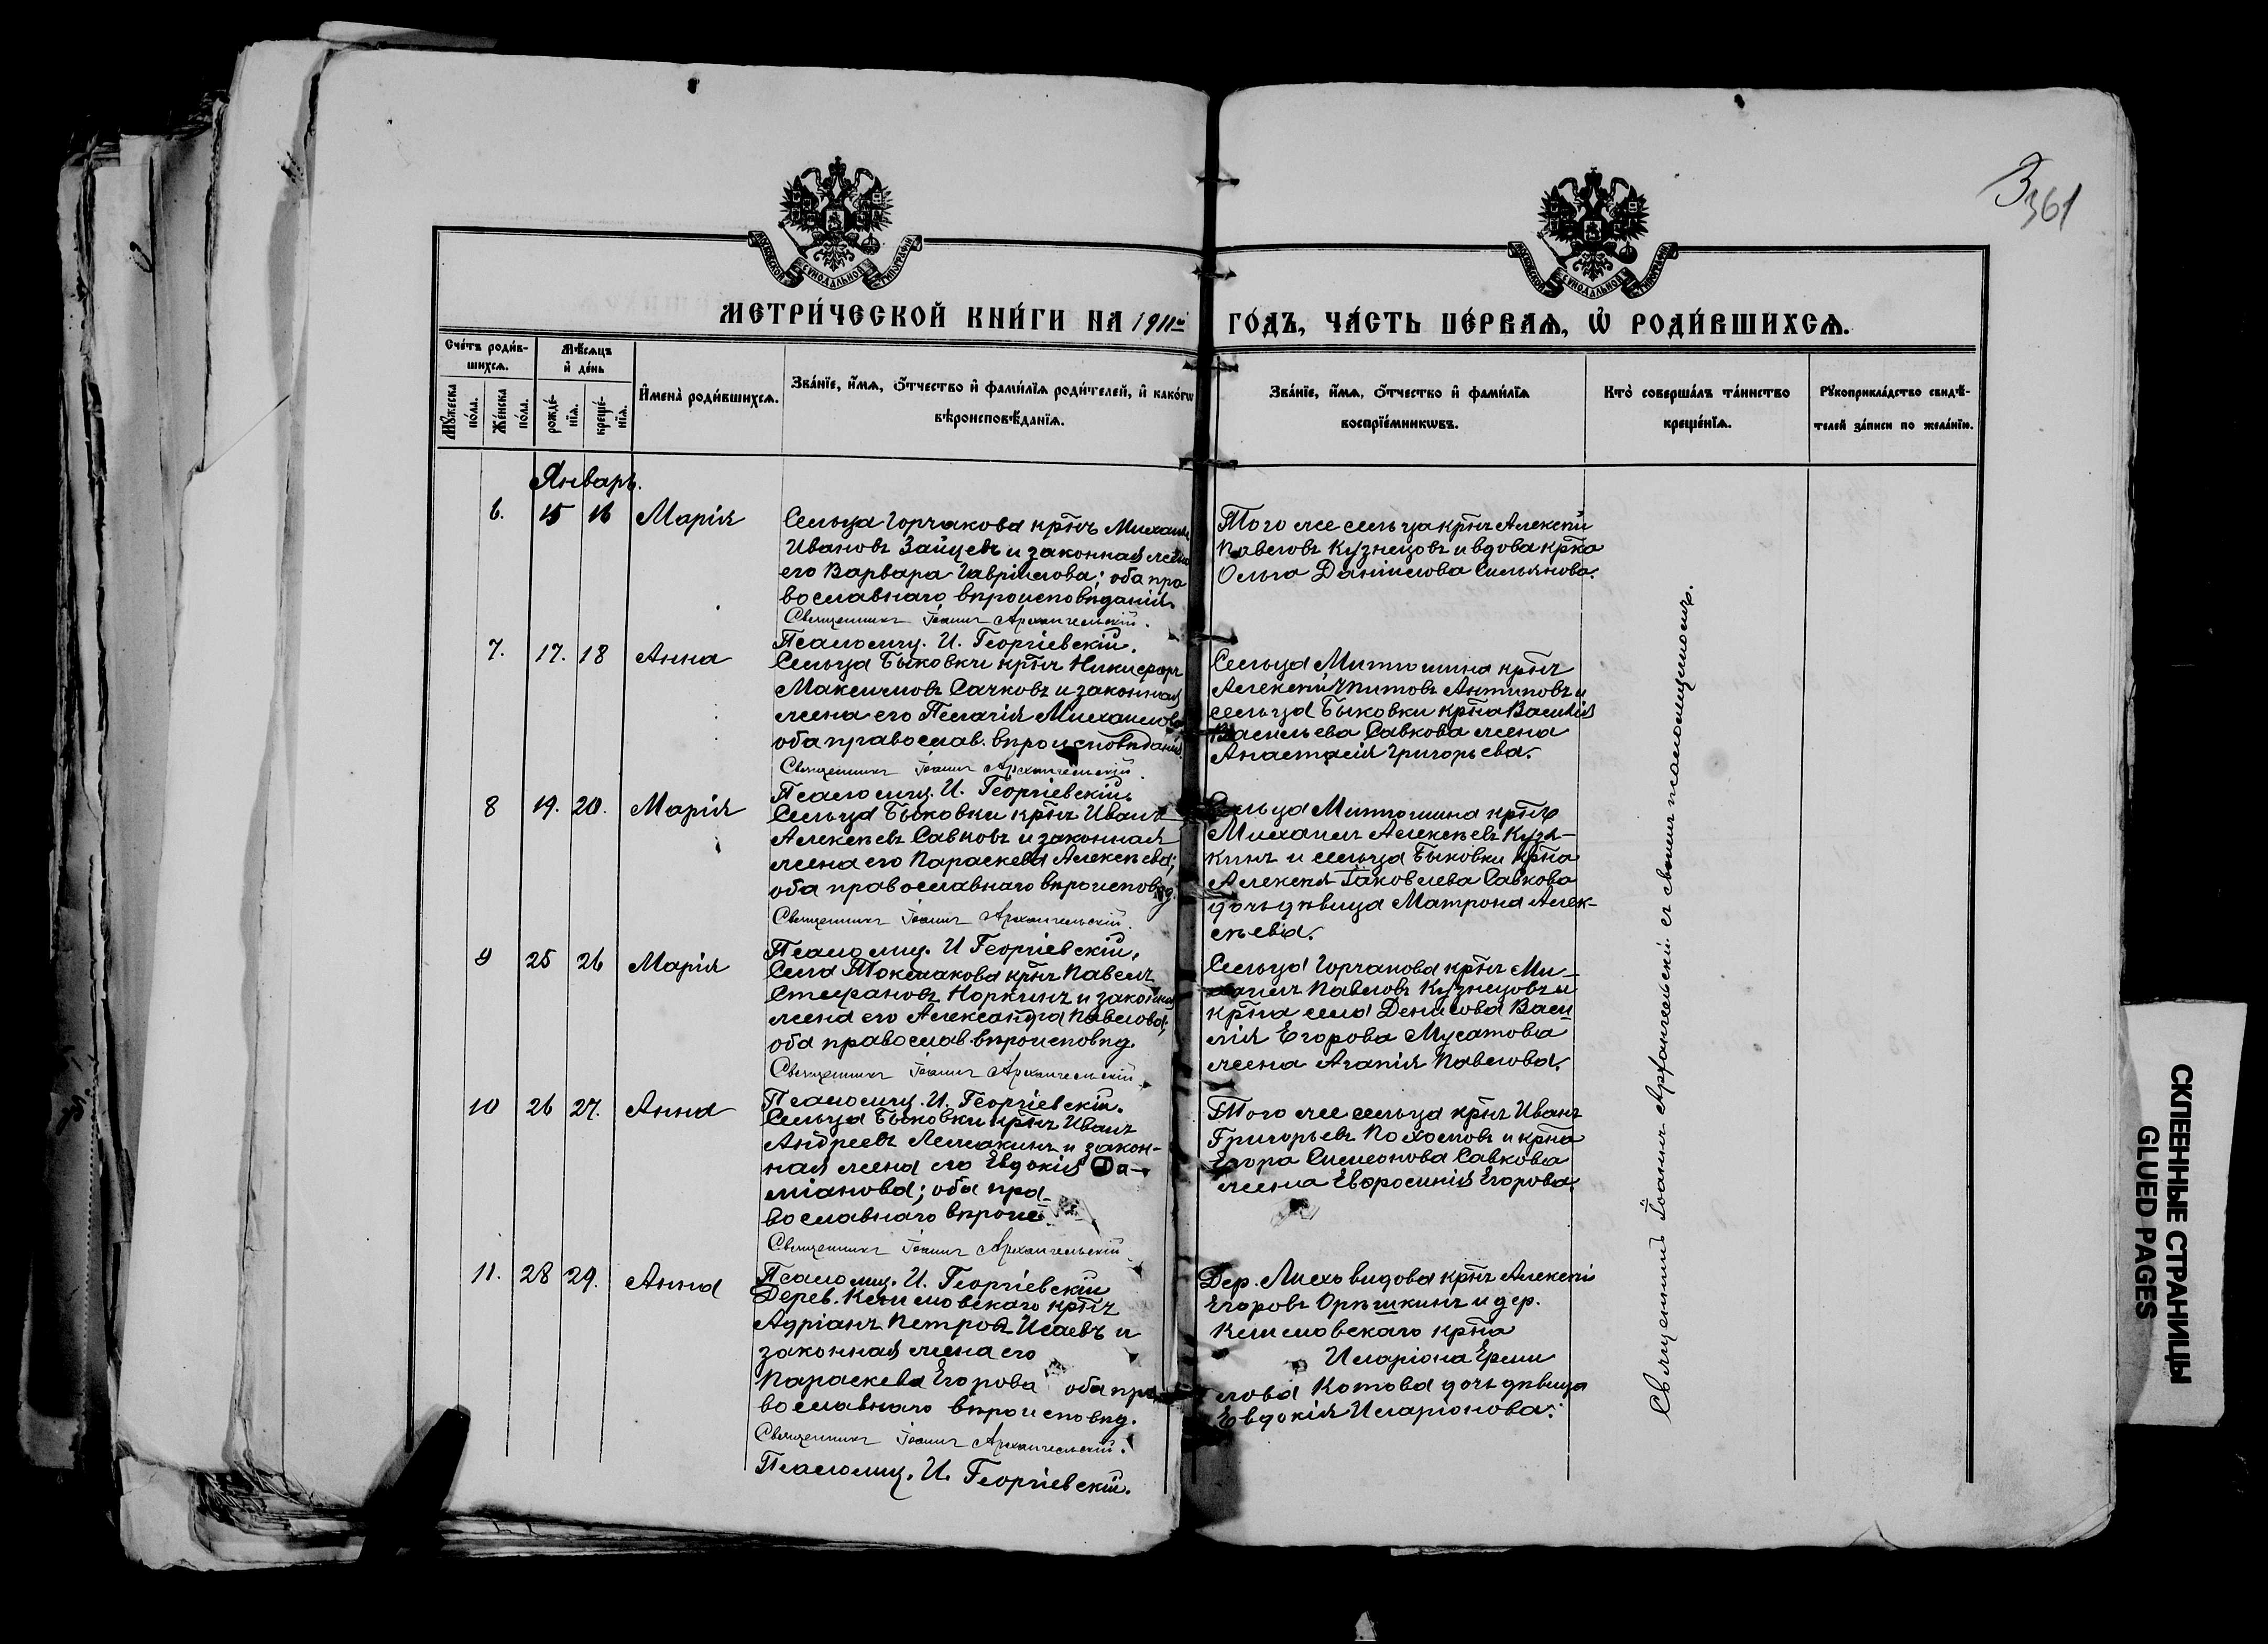 З
361
МОСКОВСКОЙ СѴНОДАЛЬНОЙ ТИПОГРАФІИ
МОСКОВСКОЙ СѴНОДАЛЬНОЙ ТИПОГРАФІИ
МЕТРИ́ЧЕСКОЙ КНИ́ГИ НА 1911й ГО́ДЪ, ЧА́СТЬ ПЕ́РВАѦ, Ѡ҆ РОДИ́ВШИХСѦ.
Сче́тъ роди́в-
шихсѧ.
Мꙋ́жеска
по́ла.
Же́нска
по́ла.
Мѣ́сѧцъ
и҆ де́нь
рожде́-
нїѧ.
креще́-
нїѧ.
И҆мена̀ роди́вшихсѧ.
Зва́нїе, и҆́мѧ, ѻ҆́тчество и҆ фами́лїѧ роди́телей, и҆ како́гѡ
вѣроисповѣ́данїѧ.
Зва́нїе, и҆́мѧ, ѻ҆́тчество и҆ фами́лїѧ
воспрїе́мникѡвъ.
Кто̀ соверша́лъ та́инство
креще́нїѧ.
Рꙋкоприкла́дство свидѣ́-
телей за́писи по жела́нїю.
Январь.
6. 15 16 Марія
Сельца Горчакова крнъ Михаилъ
Ивановъ Зайцевъ и законная жена
его Варвара Гавріилова; оба пра
вославнаго вѣроисповѣданія.
Священникъ Іоаннъ Архангельскій.
Псаломщ. И. Георгіевскій.
Того же сельца крнъ Алексѣй
Павловъ Кузнецовъ и вдова крка
Ольга Даніилова Сильянова.
7. 17. 18 Анна
Сельца Быковки крнъ Никифоръ
Максимовъ Сачковъ и законная
жена его Пелагія Михаилова
оба православ. вѣроисповѣданія
Священникъ Іоаннъ Архангельскій.
Псаломщ. И. Георгіевскій.
Сельца Митюшина крнъ
Алексѣй Титовъ Антиповъ и
сельца Быковки крна Василія
Васильева Савкова жена
Анастасія Григорьева.
8 19. 20. Марія
Сельца Быковки крнъ Иванъ
Алексѣевъ Савковъ и законная
жена его Параскева Алексѣева;
оба православнаго вѣроисповѣд.
Священникъ Іоаннъ Архангельскій.
Псаломщ. И Георгіевскій.
Сельца Митюшина крнъ
Михаилъ Алексѣевъ Кузя-
кинъ и сельца Быковки крна
Алексѣя Іаковлева Савкова
дочь дѣвица Матрона Алек-
сѣева.
9 25 26 Марія
Села Токмакова крнъ Павелъ
Стефановъ Норкинъ и законная
жена его Александра Павлова;
оба православ. вѣроисповѣд.
Священникъ Іоаннъ Архангельскій.
Псаломщ. И. Георгіевскій.
Сельца Горчакова крнъ Ми-
хаилъ Павловъ Кузнецовъ и
крна села Денисова Васи
лія Егорова Мусатова
жена Агапія Павлова.
10 26 27. Анна
Сельца Быковки крнъ Иванъ
Андреевъ Лемакинъ и закон-
ная жена его Евдокія Да-
міанова; оба пра-
вославнаго вѣроис
Священникъ Іоаннъ Архангельскій
Псаломщ. И. Георгіевскій
Того же сельца крнъ Иванъ
Григорьевъ Похомовъ и крна
Егора Симеонова Савкова
жена Евфросинія Егорова.
11. 28 29. Анна
Дерев. крнъ
Адріанъ Петровъ Исаевъ и
законная жена его
Параскева Егорова оба пра
вославнаго вѣроисповѣд.
Священникъ Іоаннъ Архангельскій.
Псаломщ. И. Георгіевскій.
Дер. крнъ Алексѣй
Егоровъ Орѣшкинъ и дер.
крна
Иларіона Ерми
лова Котова дочь дѣвица
Евдокія Иларіонова.
Священникъ Іоаннъ Архангельскій съ своимъ псаломщикомъ.
СКЛЕЕННЫЕ СТРАНИЦЫ
GLUED PAGES